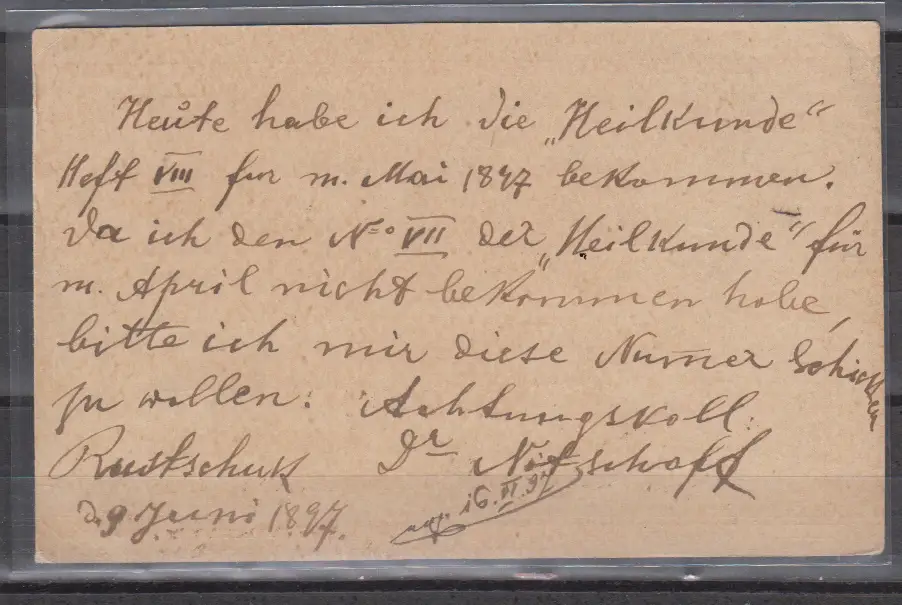 Heute habe ich die „Heilkunde“
Heft VIII fur m. Mai 1897 bekommen.
Da ich den No VII der „Heilkunde“ für
m. April nicht bekommen habe,
bitte ich mir diese Numer schicken
zu wollen: Achtungsvoll.
Rustschuk Dr
d. 9 Juni 1897. 16.VI.97